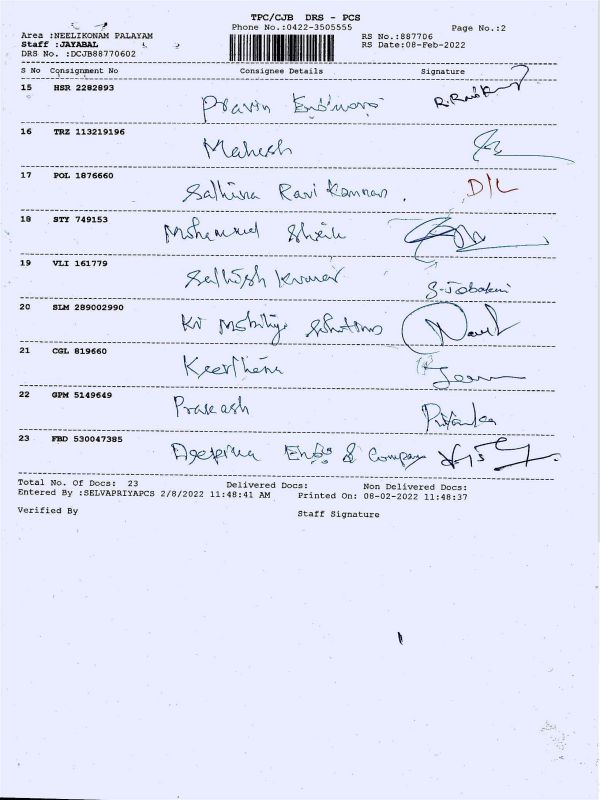 TPC/CJB DRS - PCS
Phone No.:0422-3505555 Page No.:2
Area :NEELIKONAM PALAYAM RS No.:887706
Staff :JAYABAL RS Date:08-Feb-2022
DRS No. :DCJB88770602
S No Consignment No Consignee Details Signature
15 HSR 2282893
Pravin
16 TRZ 113219196
Mahesh
17 POL 1876660
Sathina Ravi Kannan. D/L
18 STY 749153
Mohammed
19 VLI 161779
Sathish Kumar
20 SLM 289002990
Ki Mobility Solutions
21 CGL 819660
Keerthana
22 GPM 5149649
Prakash Priyanka
23 FBD 530047385
Engs & Company
Total No. Of Docs: 23 Delivered Docs: Non Delivered Docs:
Entered By :SELVAPRIYAPCS 2/8/2022 11:48:41 AM Printed On: 08-02-2022 11:48:37
Verified By Staff Signature